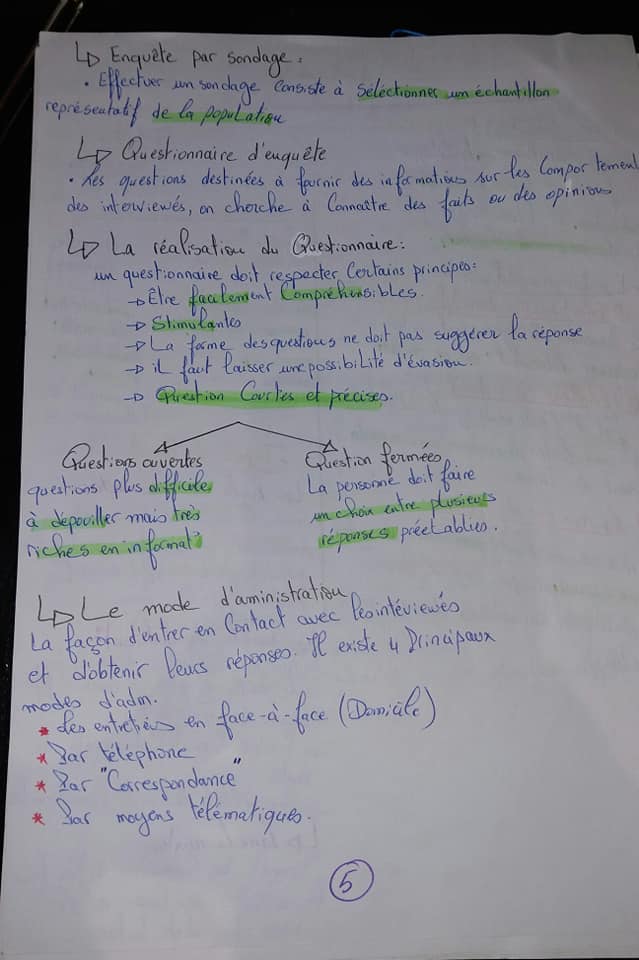 ↳ Enquête par sondage :
• Effectuer un sondage consiste à Séléctionner un échantillon
représentatif de la population
↳ Questionnaire d'enquête
• Les questions destinées à fournir des informations sur les Comportement
des interviewés, on cherche à Connaître des faits ou des opinions
↳ La réalisation du Questionnaire :
un questionnaire doit respecter Certains principes :
→ Être facilement Compréhensibles.
→ Stimulantes
→ La forme des questions ne doit pas suggérer la réponse
→ il faut laisser une possibilité d'évasion.
→ Question Courtes et précises.
Questions ouvertes
questions plus difficile
à dépouiller mais très
riches en informat°
Question fermées
La personne doit faire
un choix entre plusieurs
réponses préetablies.
↳ Le mode d'aministration
La façon d'entrer en Contact avec les intéviewés
et d'obtenir leurs réponses. Il existe 4 Principaux
modes d'adm.
* Les entretiens en face-à-face (Domicile)
* Par téléphone
* Par "Correspondance"
* Par moyens télématiques.
5